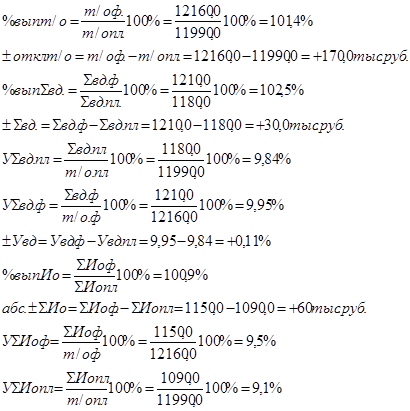 %вып т/о = т/оф. / т/опл 100% = 12160,0 / 11990,0 100% = 101,4%
± откл т/о = т/оф. − т/опл = 12160,0 − 11990,0 = +170,0 тыс руб.
%вып Σвд. = Σвд.ф / Σвд.пл. 100% = 1210,0 / 1180,0 100% = 102,5%
± Σвд. = Σвд.ф − Σвд.пл = 1210,0 − 1180,0 = +30,0 тыс руб.
УΣвд.пл = Σвд.пл / т/о.пл 100% = 1180,0 / 11990,0 100% = 9,84%
УΣвд.ф = Σвд.ф / т/о.ф 100% = 1210,0 / 12160,0 100% = 9,95%
± Увд = Увдф − Увдпл = 9,95 − 9,84 = +0,11%
%вып Ио = ΣИоф / ΣИопл 100% = 100,9%
абс. ± ΣИо = ΣИоф − ΣИопл = 1150,0 − 1090,0 = +60 тыс руб.
УΣИоф = ΣИоф / т/оф 100% = 1150,0 / 12160,0 100% = 9,5%
УΣИопл = ΣИопл / т/опл 100% = 1090,0 / 11990,0 100% = 9,1%